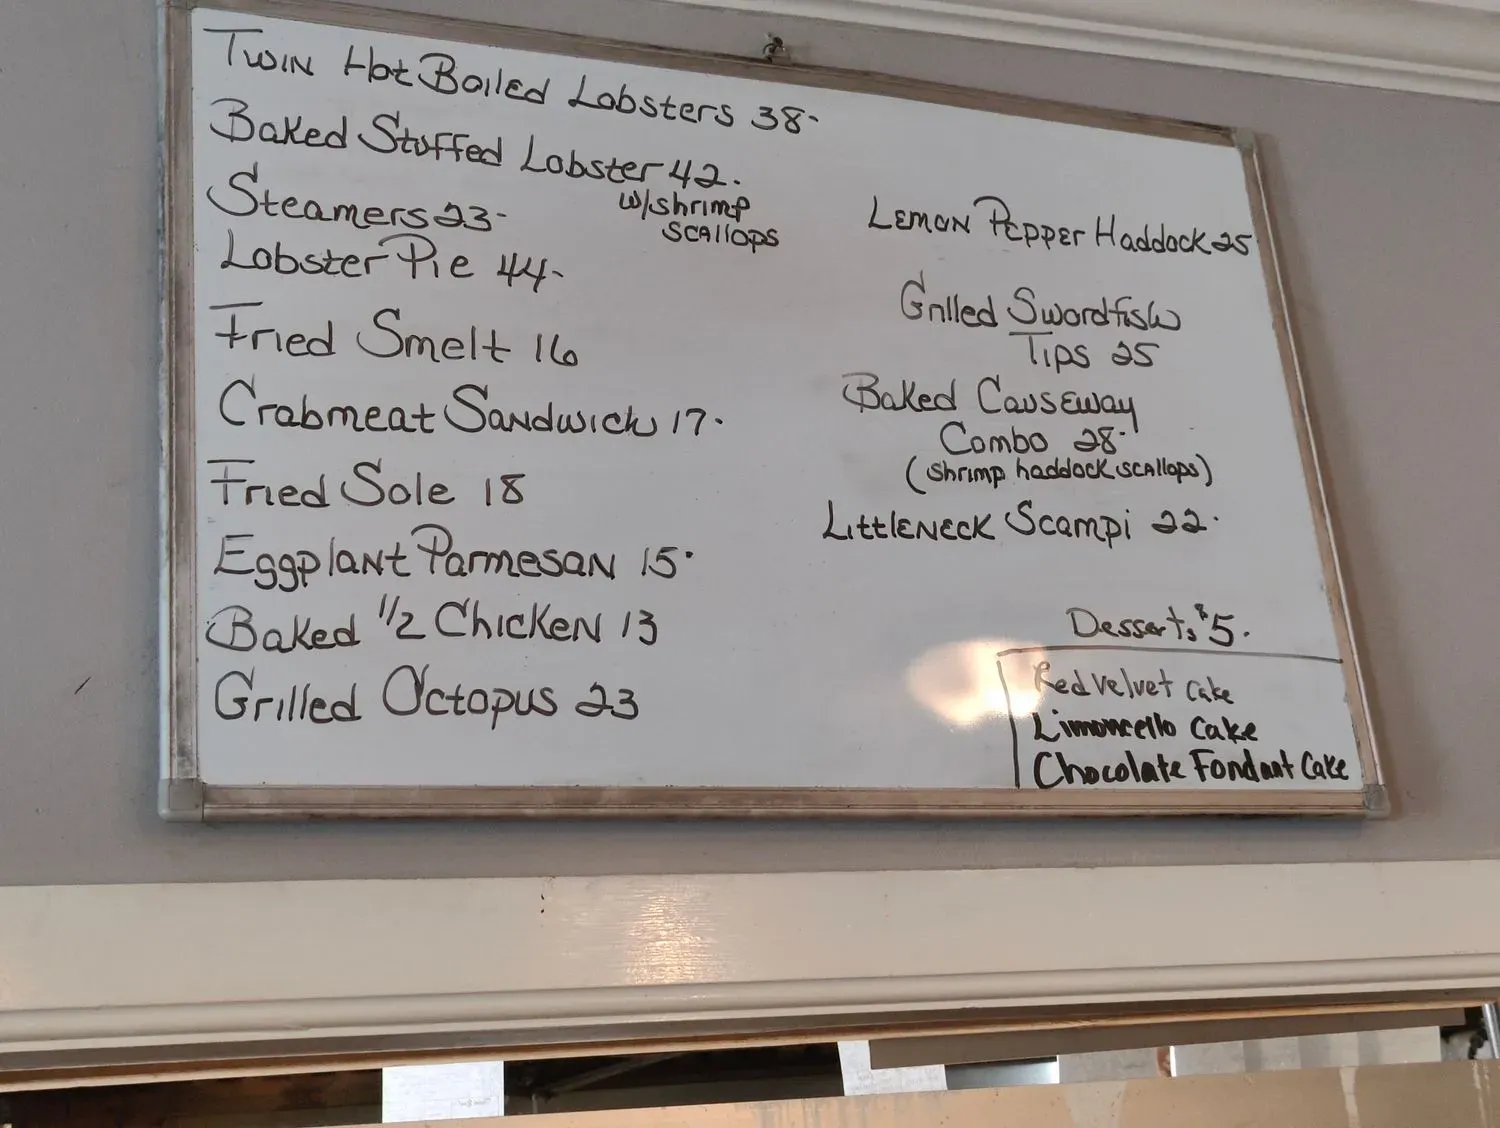 Twin Hot Boiled Lobsters 38-
Baked Stuffed Lobster 42.
w/shrimp
scallops
Steamers 23-
Lobster Pie 44-
Fried Smelt 16
Crabmeat Sandwich 17.
Fried Sole 18
Eggplant Parmesan 15.
Baked 1/2 Chicken 13
Grilled Octopus 23
Lemon Pepper Haddock 25
Grilled Swordfish
Tips 25
Baked Causeway
Combo 28.
(shrimp haddock scallops)
Littleneck Scampi 22.
Desserts $5.
Red velvet cake
Limoncello cake
Chocolate Fondant Cake